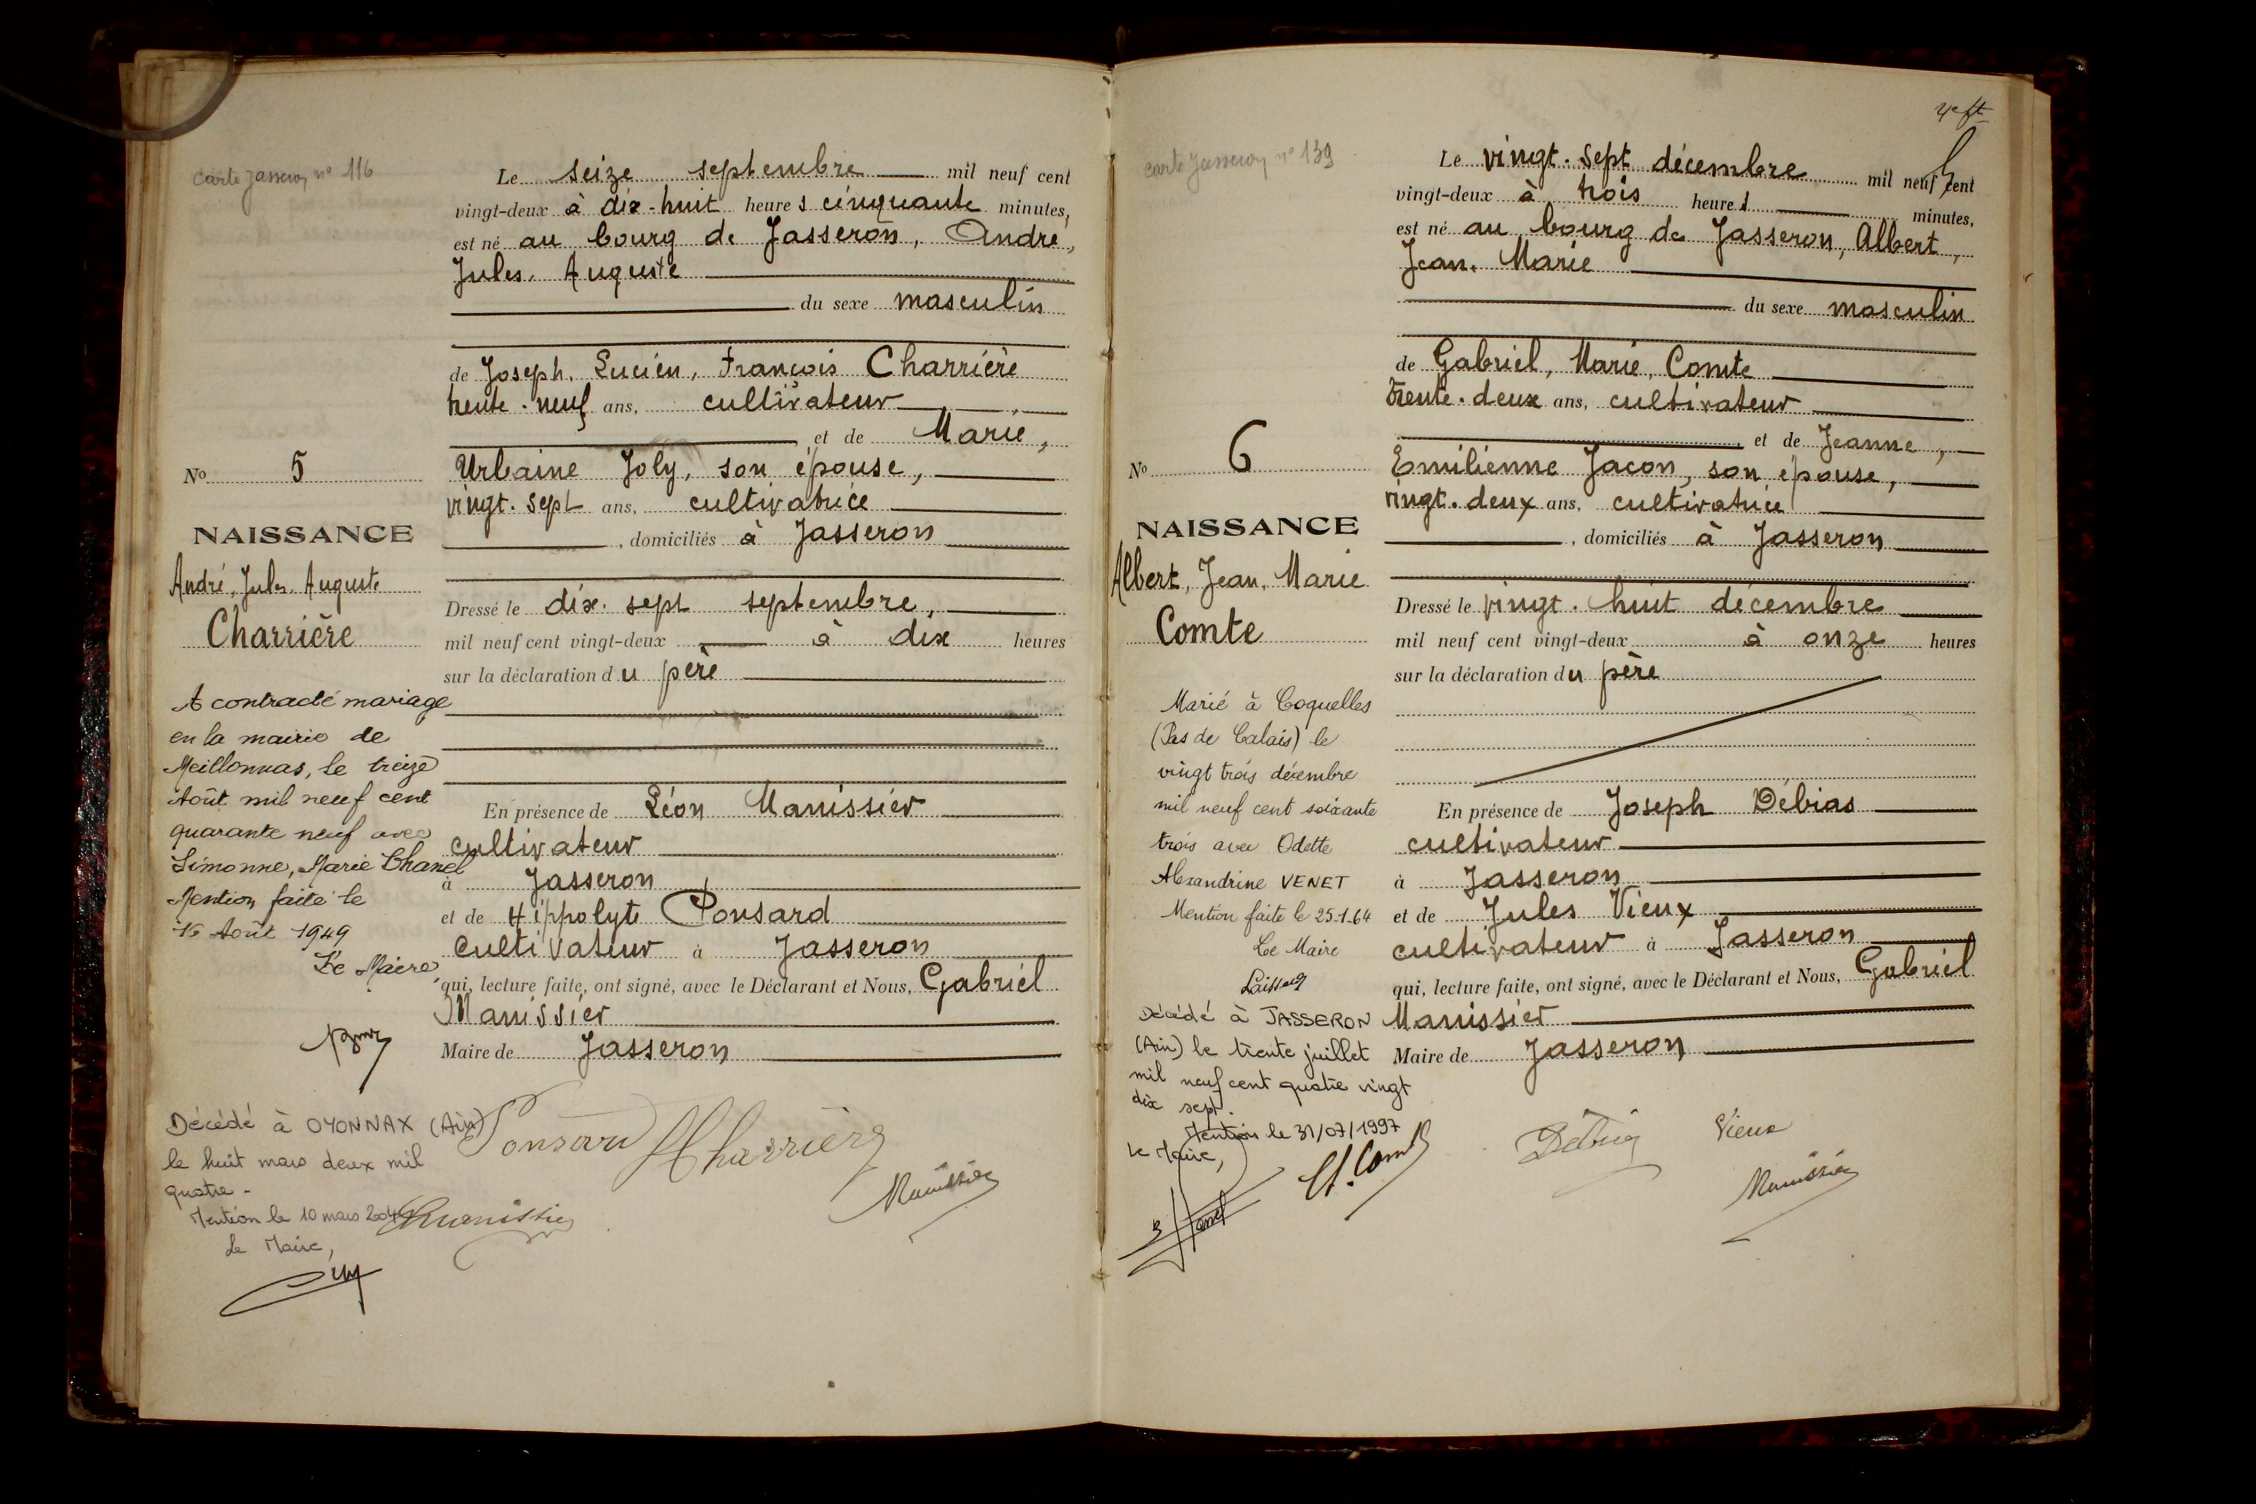 carte Jasseron n° 116
Le seize septembre mil neuf cent
vingt-deux à dix-huit heures cinquante minutes,
est né au bourg de Jasseron, André,
Jules, Auguste
du sexe masculin
de Joseph, Lucien, François Charrière
trente-neuf ans, cultivateur
et de Marie,
Urbaine Joly, son épouse,
vingt-sept ans, cultivatrice
, domiciliés à Jasseron
No 5
NAISSANCE
André, Jules, Auguste
Charrière
Dressé le dix-sept septembre,
mil neuf cent vingt-deux à dix heures
sur la déclaration du père
En présence de Léon Manissier
cultivateur
à Jasseron
et de Hippolyte Ponsard
cultivateur à Jasseron
qui, lecture faite, ont signé, avec le Déclarant et Nous, Gabriel
Manissier
Maire de Jasseron
A contracté mariage
en la mairie de
Meillonnas, le treize
Août mil neuf cent
quarante neuf avec
Simonne, Marie Chanel
Mention faite le
16 Août 1949
Le Maire,
Décédé à OYONNAX (Ain)
le huit mars deux mil
quatre.
Mention le 10 mars 2004
Le Maire,
Ponsard Charrière
Manissier
Manissier
carte Jasseron n° 139
Le vingt-sept décembre mil neuf cent
vingt-deux à trois heures minutes,
est né au bourg de Jasseron, Albert,
Jean, Marie
du sexe masculin
de Gabriel, Marie, Comte
trente-deux ans, cultivateur
et de Jeanne,
Emilienne Jacon, son épouse,
vingt-deux ans, cultivatrice
, domiciliés à Jasseron
No 6
NAISSANCE
Albert, Jean, Marie
Comte
Dressé le vingt-huit décembre
mil neuf cent vingt-deux à onze heures
sur la déclaration du père
En présence de Joseph Débias
cultivateur
à Jasseron
et de Jules Vieux
cultivateur à Jasseron
qui, lecture faite, ont signé, avec le Déclarant et Nous, Gabriel
Manissier
Maire de Jasseron
Marié à Coquelles
(Pas de Calais) le
vingt trois décembre
mil neuf cent soixante
trois avec Odette
Alexandrine VENET
Mention faite le 25.1.64
Le Maire
Décédé à JASSERON
(Ain) le trente juillet
mil neuf cent quatre vingt
dix sept.
Mention le 31/07/1997
Le Maire,
Vieux
Manissier